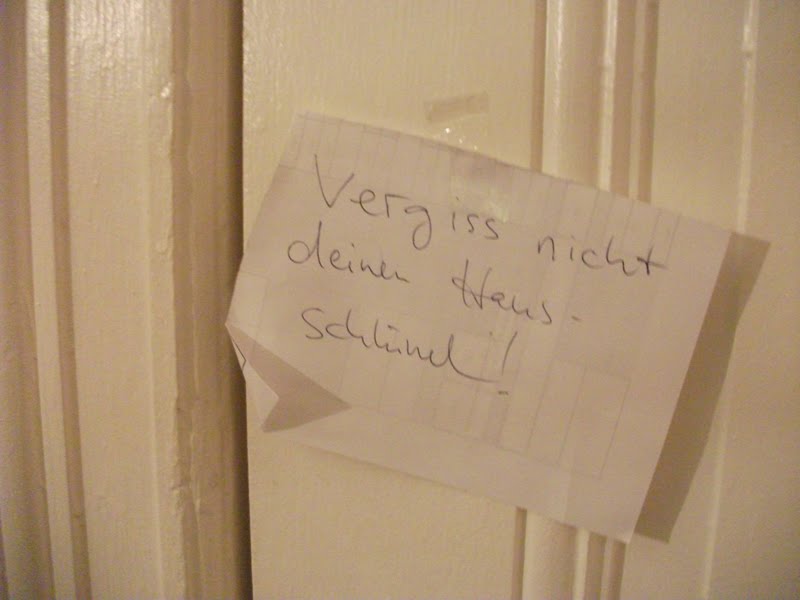 Vergiss nicht
deinen Haus-
schlüssel!